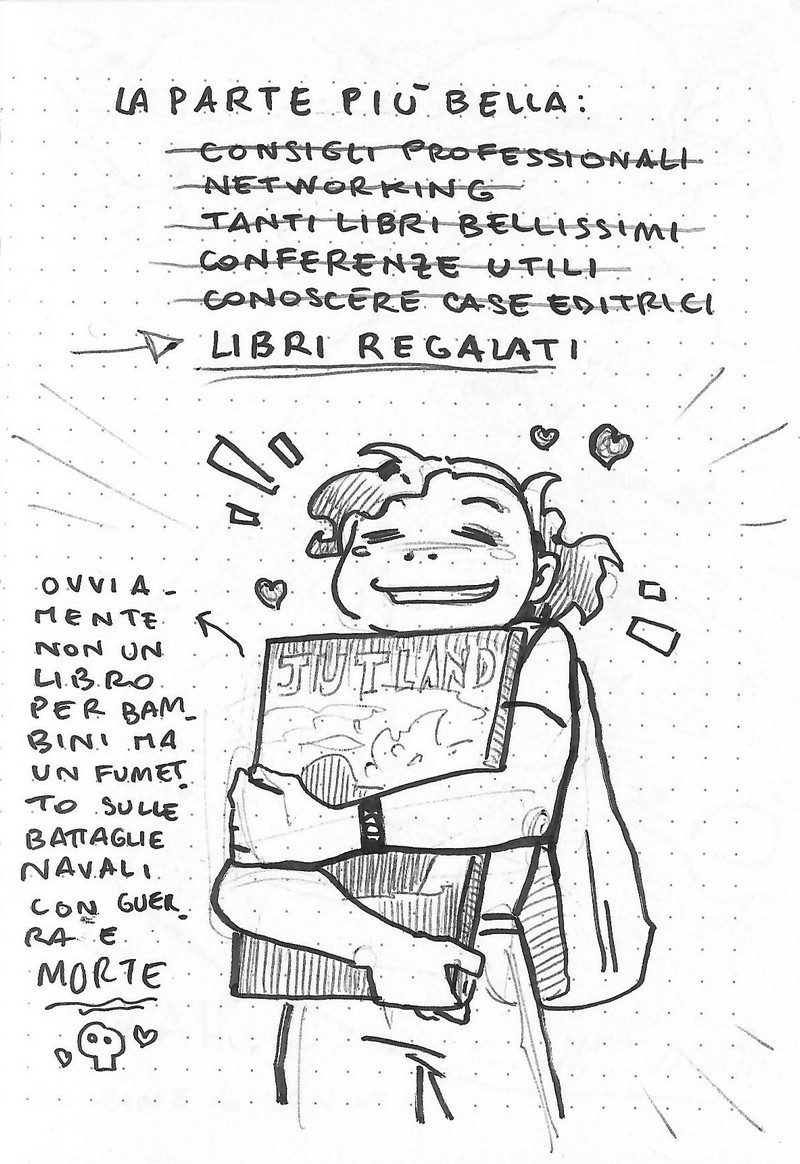 LA PARTE PIÙ BELLA:
CONSIGLI PROFESSIONALI
NETWORKING
TANTI LIBRI BELLISSIMI
CONFERENZE UTILI
CONOSCERE CASE EDITRICI
LIBRI REGALATI
OVVIA-
MENTE
NON UN
LIBRO
PER BAM-
BINI MA
UN FUMET-
TO SULLE
BATTAGLIE
NAVALI
CON GUER-
RA E
MORTE
JUTLAND